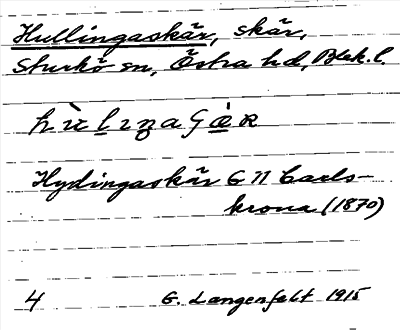 Hullingaskär, skär,
Sturkö sn, Östra hd, Blek. l.
Hydingaskär G N Carls-
krona (1870)
4 G. Langenfelt 1915